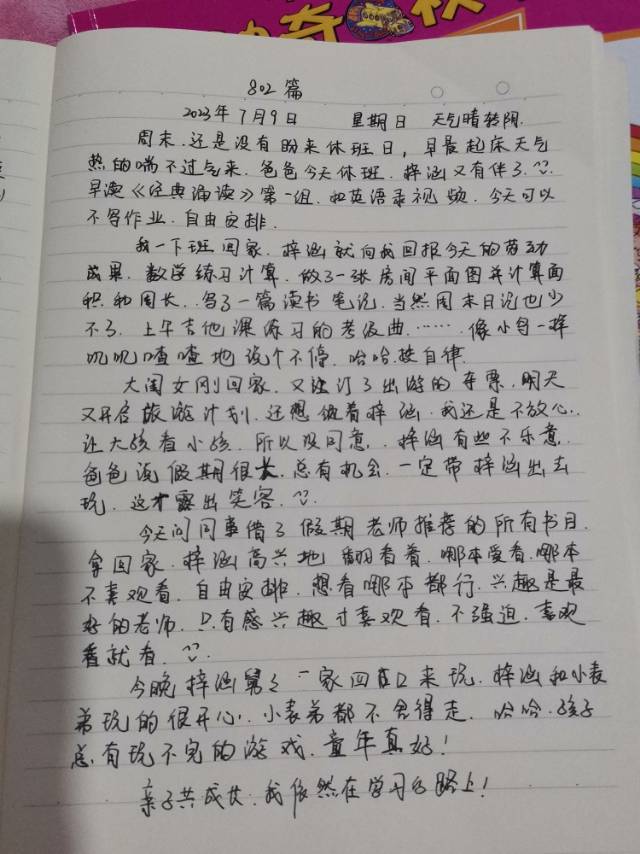 神奇 校
802篇
2023年7月9日 星期日 天气晴转阴.
周末.还是没有盼来休班日，早晨起床天气
热的喘不过气来.爸爸今天休班.梓涵又有伴了.
早读《经典诵读》第一组.和英语录视频.今天可以
不写作业.自由安排.
我一下班回家.梓涵就向我回报今天的劳动
成果.数学练习计算.做了一张房间平面图并计算面
积和周长.写了一篇读书笔记.当然周末日记也少
不了.上午吉他课练习的考级曲……像小鸟一样
叽叽喳喳地说个不停.哈哈.挺自律.
大闺女刚回家.又预订了出游的车票.明天
又开启旅游计划.还想领着梓涵.我还是不放心.
让大孩看小孩.所以没同意.梓涵有些不乐意.
爸爸说假期很长.总有机会.一定带梓涵出去
玩.这才露出笑容.
今天问同事借了假期老师推荐的所有书目.
拿回家.梓涵高兴地翻看着.哪本爱看.哪本
不喜欢看.自由安排.想看哪本都行.兴趣是最
好的老师.只有感兴趣才喜欢看.不强迫.喜欢
看就看.
今晚梓涵舅舅一家四口来玩.梓涵和小表
弟玩的很开心.小表弟都不舍得走.哈哈.孩子
总有玩不完的游戏.童年真好！
亲子共成长.我依然在学习的路上！